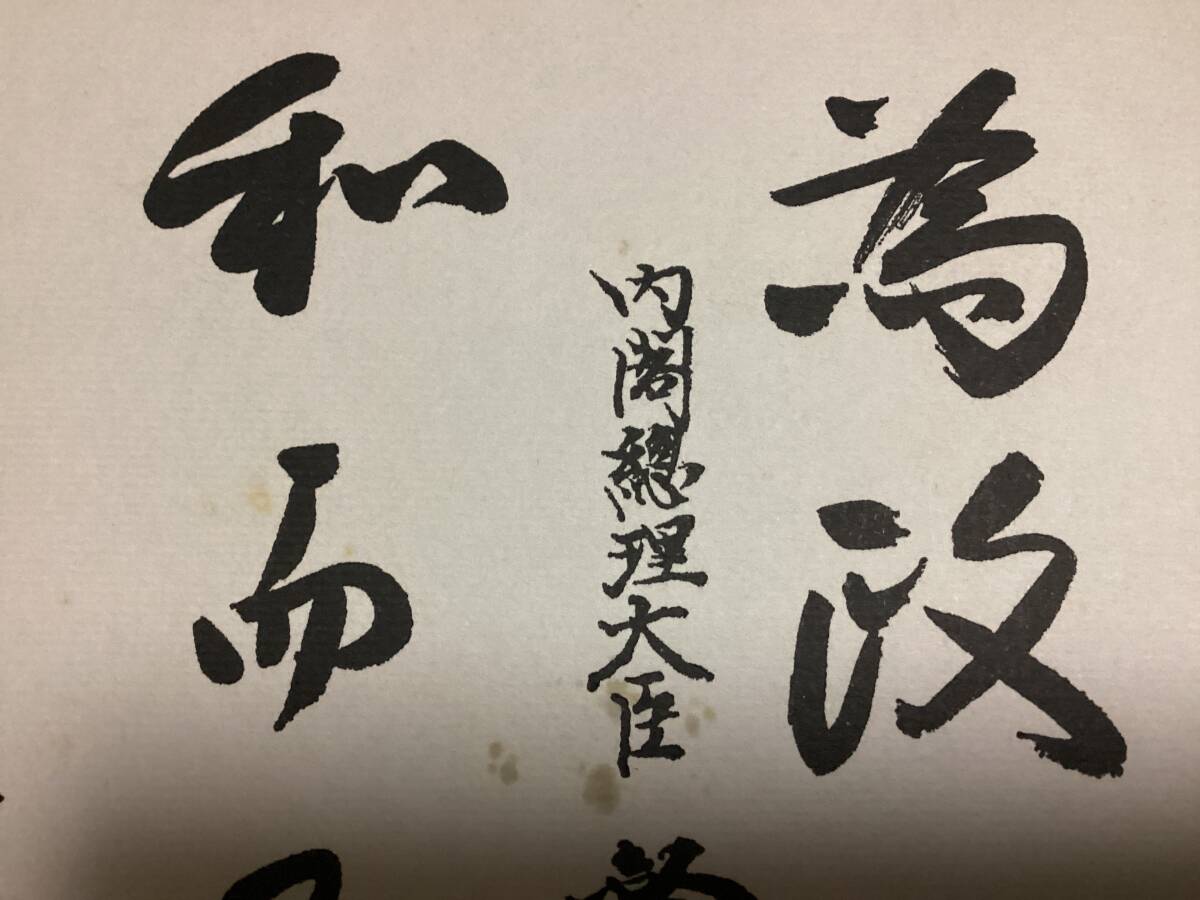 為政
内閣總理大臣
和而